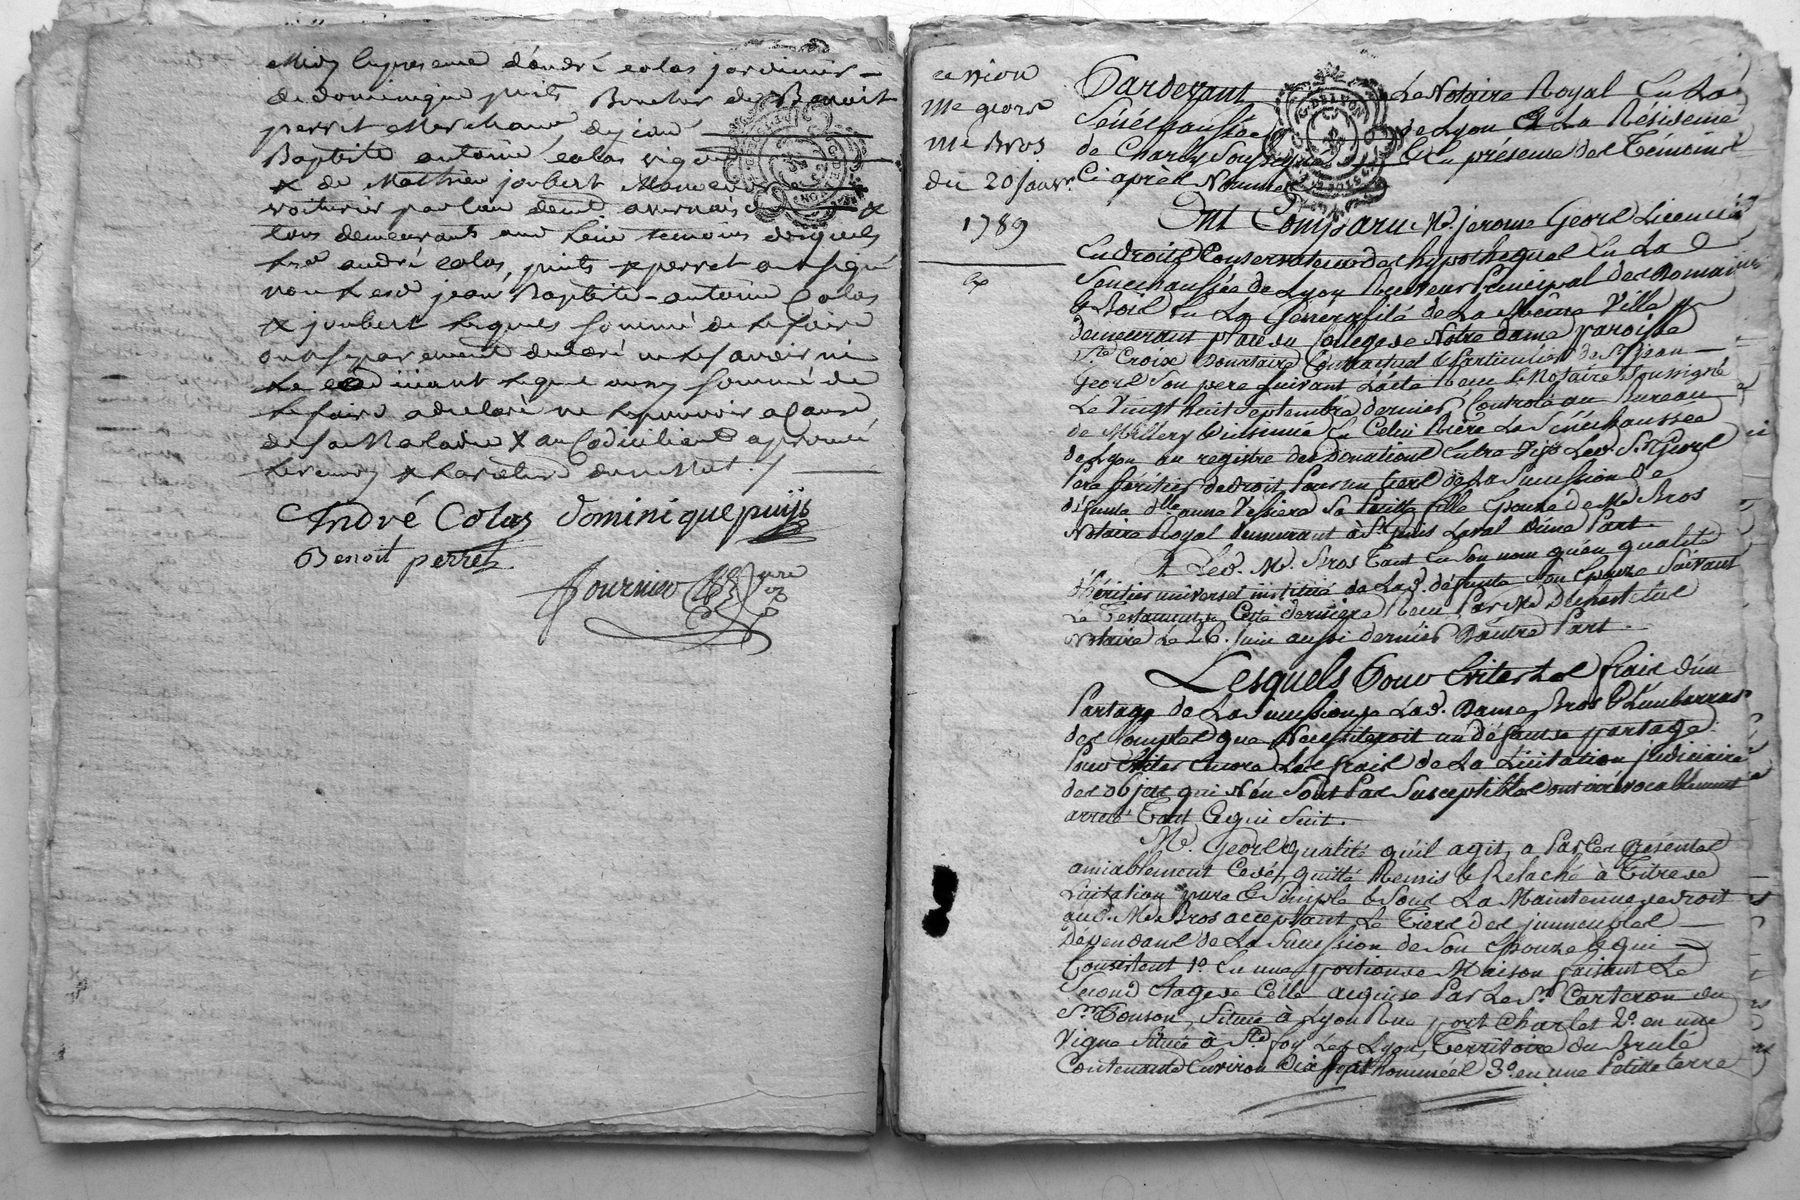 Midy en presence d'andré colas jardinier
de dominique puits Boucher de Benoit
perret Marchand de jean
Baptiste antoine colas vigneron
& de Mathieu joubert
voiturier par eau
tous demeurants aud lieu temoins desquels
led andré colas, puits & perret ont signé
non led jean Baptiste antoine Colas
& joubert lesquels sommé de le faire
ont separement declaré ne le savoir ni
led codicillant lequel aussy sommé de
le faire a declaré ne le pouvoir a Cause
de sa Maladie &
André Colas dominique puijs
Benoit perret
fournier
cession
Me george
Me Bros
du 20 Janvr.
1789
G. DE LYON
Pardevant Le Notaire Royal En La
Sénéchaussée de Lyon A La Résidence
de Charly Soussigné & En présence des Témoins
Ci après Nommés
Ont Comparu Me. jerome Georg Licentié
En droits Conservateur des hypotheques En La
Senechaussée de Lyon Receveur Principal des Domaines
& Bois En La Généralité de La Même Ville
demeurant place du College de Notre Dame paroisse
Ste. Croix Donataire Contractuel & Particulier de Sr. jean
Georg Son pere Suivant L'acte Recu Le Notaire Soussigné
Le Vingt huit Septembre dernier Controlé au Bureau
de Millery Et insinué En Celui Rière La Sénéchaussée
de Lyon au registre des Donations Entre Vifs Led. Sr. Georg
Pere héritier de droit Pour un tiers de La Succession de
défunte dlle. anne Vessiere Sa Petitte fille Epouse de Me Bros
Notaire Royal demeurant à St. Genis Laval D'une Part
Et Led. Me. Bros Tant En Son nom qu'en qualité
d'héritier universel institué de Lad. défunte Son Epouze Suivant
Le Testament de Cette derniere Recu Par Me
Notaire Le 26. juin aussi dernier D'autre Part.
Lesquels Pour Eviter Les frais d'un
Partage de La Succession de Lad. Dame Bros & L'embarras
des Comptes que Necessiteroit un défaut de partage
Pour Eviter Encore Les frais de La Licitation judiciaire
des objets qui N'en Sont Pas Susceptibles ont irrévocablement
arreté Tout Ce qui Suit.
Me. Georg qualité qu'il agit, a Par Ces présentes
amiablement Cedé, quitté Remis & Relaché à Titre de
Licitation pure & Simple & Sous La Maintenue de droit
aud. Me Bros acceptant Le Tiers des jmmeubles
dépendans de La Succession de Son Epouze & qui
Consistent 1o. En une portion de Maison faisant Le
Second Etage de Celle acquise Par Le Sr. Carteron du
Sr. Touson, Située à Lyon Rue port Charlet 2o. en une
Vigne Située à Ste. foy Les Lyon, Territoire du Brulé
Contenante Environ Dix Sept hommées 3o. en une Petitte terre